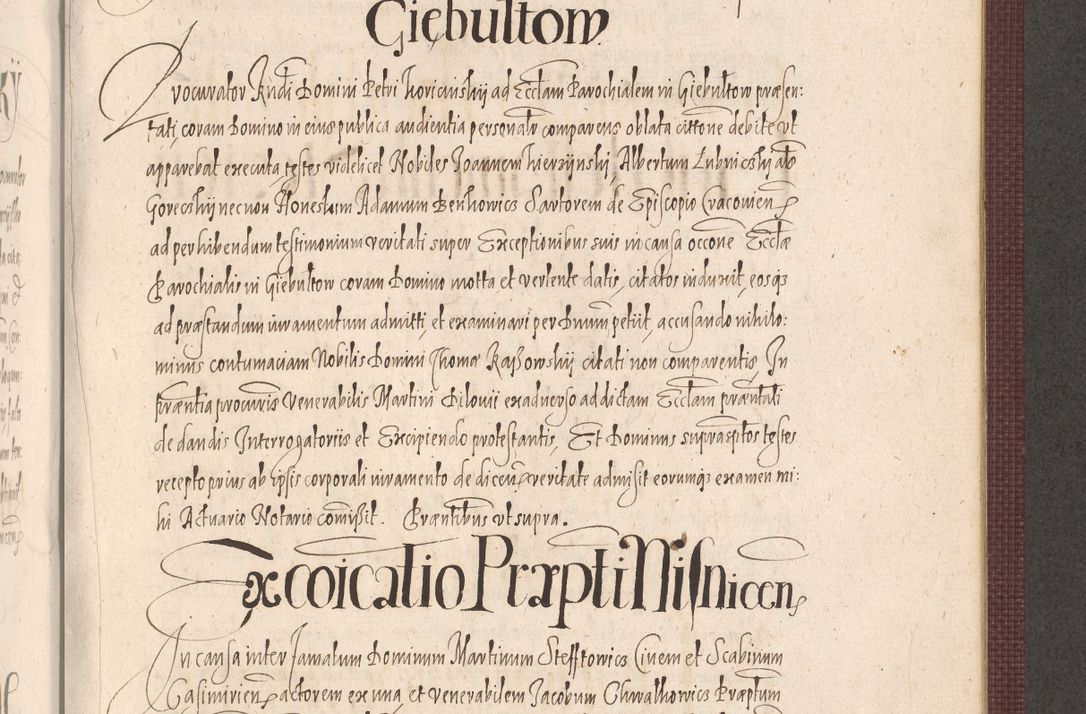 Giebultow
Procurator Rndi Domini Petri Xoricinskij ad Ecclam Parochialem in Giebultow præsen:
tati, coram Domino in eius publica audientia personalr comparens oblata cittone debite vt
apparebat executa testes videlicet Nobiles Joannem hierzijnski, Albertum Lubniczkij ab
Goreczkij necnon Honestum Adamum Benkowicz Sartorem de Episcopio Cracovien
ad perhibendum testimonium veritati super Exceptionibus suis in causa occone Ecclæ
Parochialis in Giebultow coram Domino motta et vertente datis, citatos induxit, eosqз
ad præstandum iuramentum admitti, et examinari per Dnum petiit, accusando nihilo:
minus contumaciam Nobilis Domini Thomæ Raßowskij citati non comparentis, In
præntia procuris Venerabilis Martini Dilovii exaduerso ad dictam Ecclam præntati
de dandis Interrogatoriis et Excipiendo protestantis, Et Dominus suprascptos testes
recepto prius ab ipsis corporali iuramento de dicen veritate admisit eorumqз examen mi:
hi Actuario Notario comißit. Præntibus vt supra.
Excoicatio Præpti Misnicen
In causa inter famatum Dominum Martinum Steffkowicz Civem et Scabinum
Casimirien actorem ex una, et venerabilem Jacobum Chwalkowicz Præptum